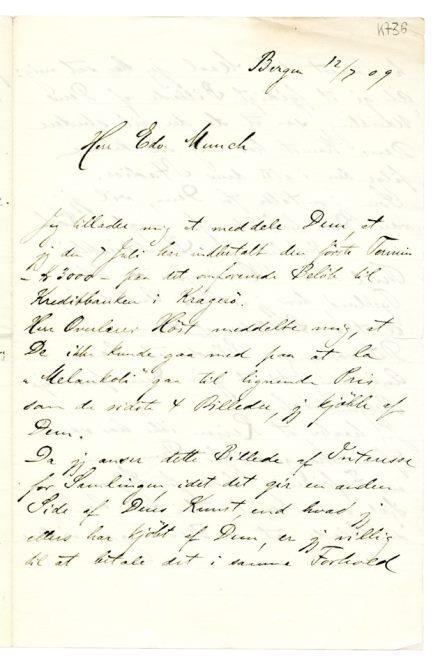 K736
Bergen 12/7 09
Herr Edv. Munch
Jeg tillader mig at meddele Dem, at
jeg den 7 Juli har indbetalt den første Termin
- kr 3000 - paa det omforenede Beløb til
Kreditbanken i Kragerø.
Herr Overlærer Høst meddelte mig, at
De ikke kunde gaa med paa at la
"Melankoli" gaa til lignende Pris
som de sidste 4 Billeder, jeg kjøbte af
Dem.
Da jeg anser dette Billede af Interesse
for Samlingen, idet det gir en anden
Side af Deres Kunst, end hvad jeg
ellers har kjøbt af Dem, er jeg villig
til at betale det i samme Forhold